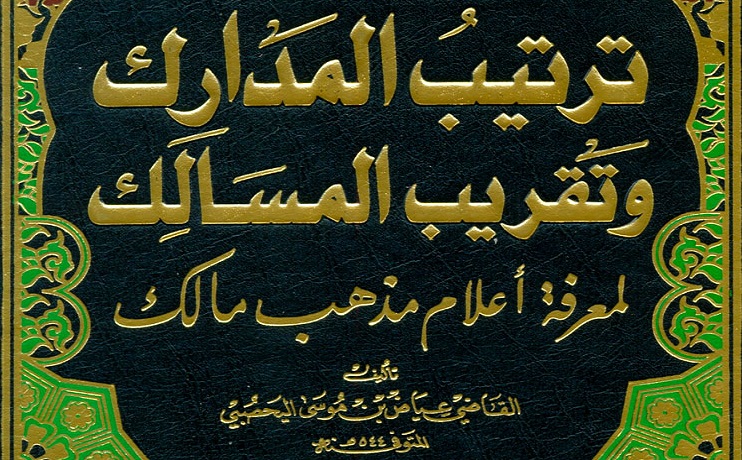 ترتيبُ المَدارك
وَتَقريب المسَالَكِ
لمعرفة أعلام مذهب مالك
تأليف
القَاضي عيَاض بْن مُوسَى اليحصُبيِّ
المتوفى سنة ٥٤٤ هـ